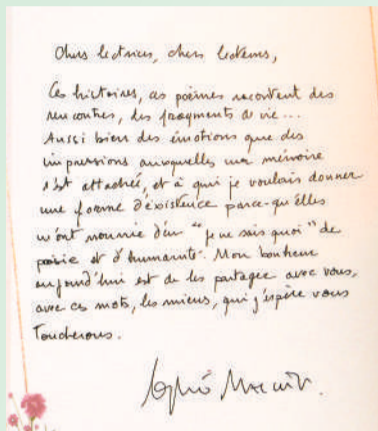 Chers lectrices, chers lecteurs,
Ces histoires, ces poèmes racontent des
rencontres, des fragments de vie...
Aussi bien des émotions que des
impressions auxquelles ma mémoire
s'est attachée, et à qui je voulais donner
une forme d'existence parce-qu'elles
m'ont nourrie d'un "je ne sais quoi" de
poésie et d'humanité. Mon bonheur
aujourd'hui est de les partager avec vous,
avec ces mots, les miens, qui j'espère vous
toucherons.